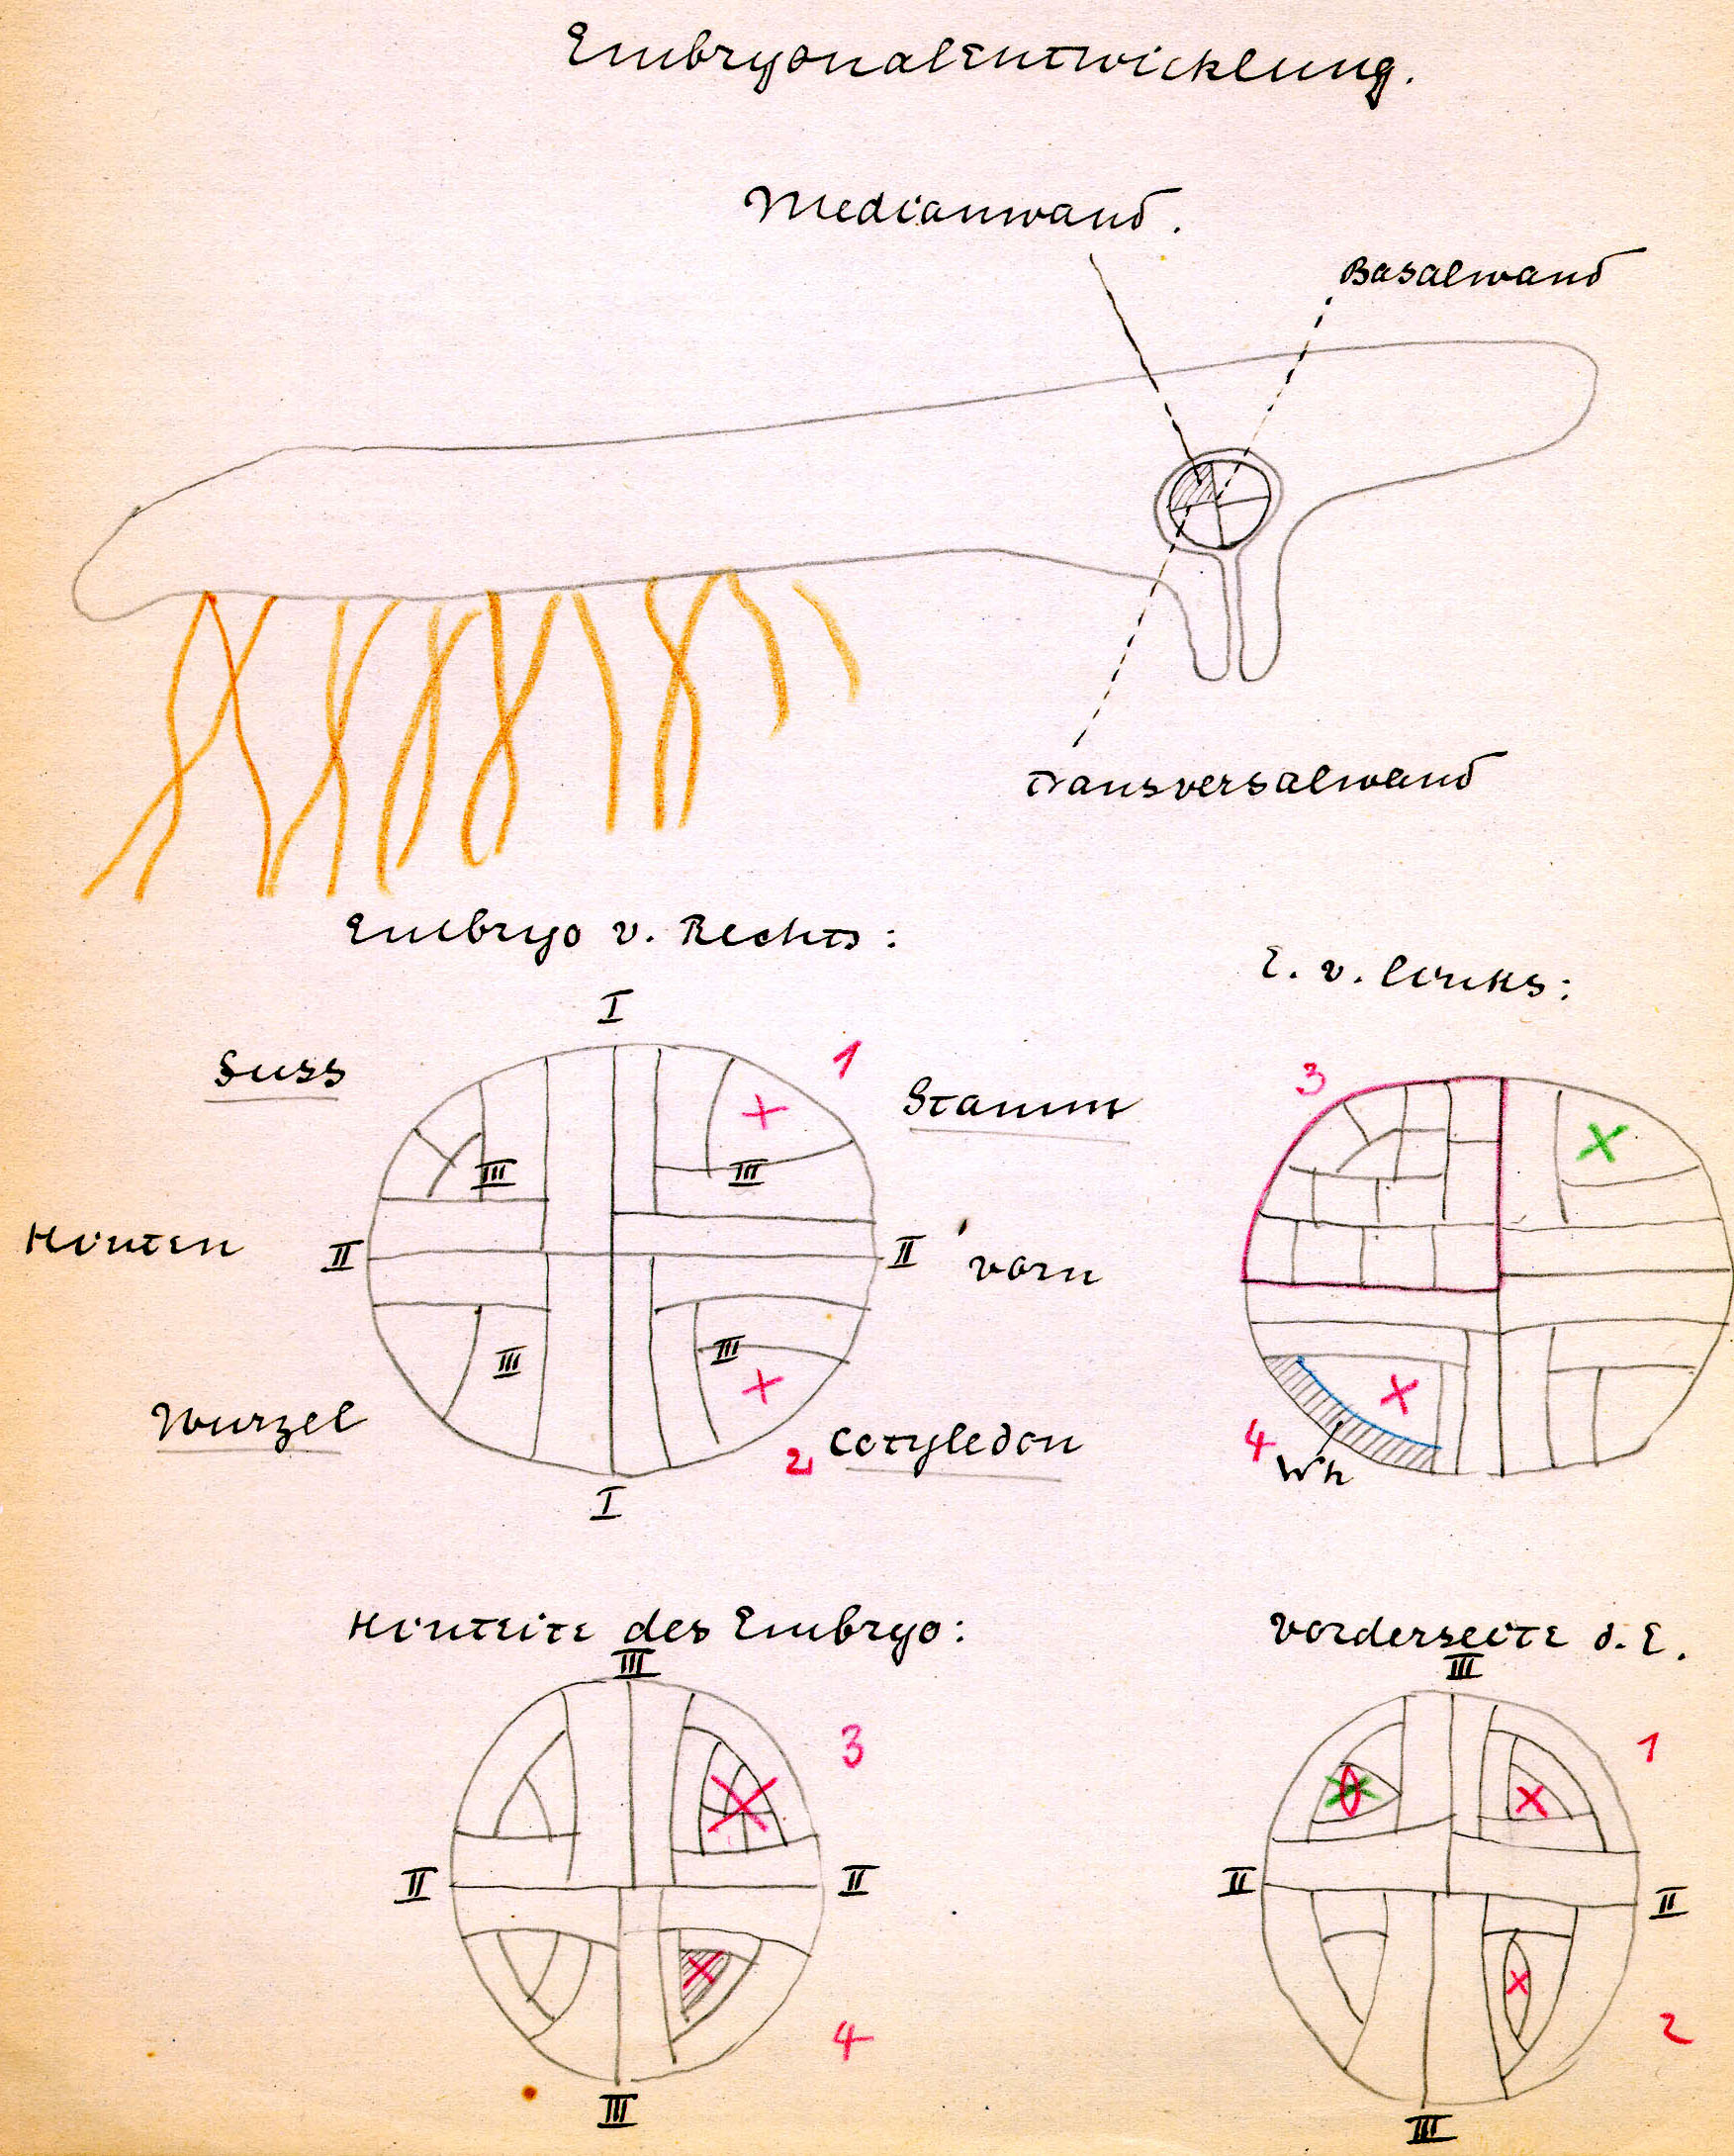 Embryonalentwicklung.
Medianwand.
Basalwand
Transversalwand
Embryo v. Rechts:
E. v. links:
I
1
3
Fuss
Stamm
III
III
Hinten
II
II
vorn
III
III
Wurzel
2
Cotyledon
4
Wh
I
Hinteite des Embryo:
Vorderseite d. E.
III
III
3
1
II
II
II
II
4
2
III
III